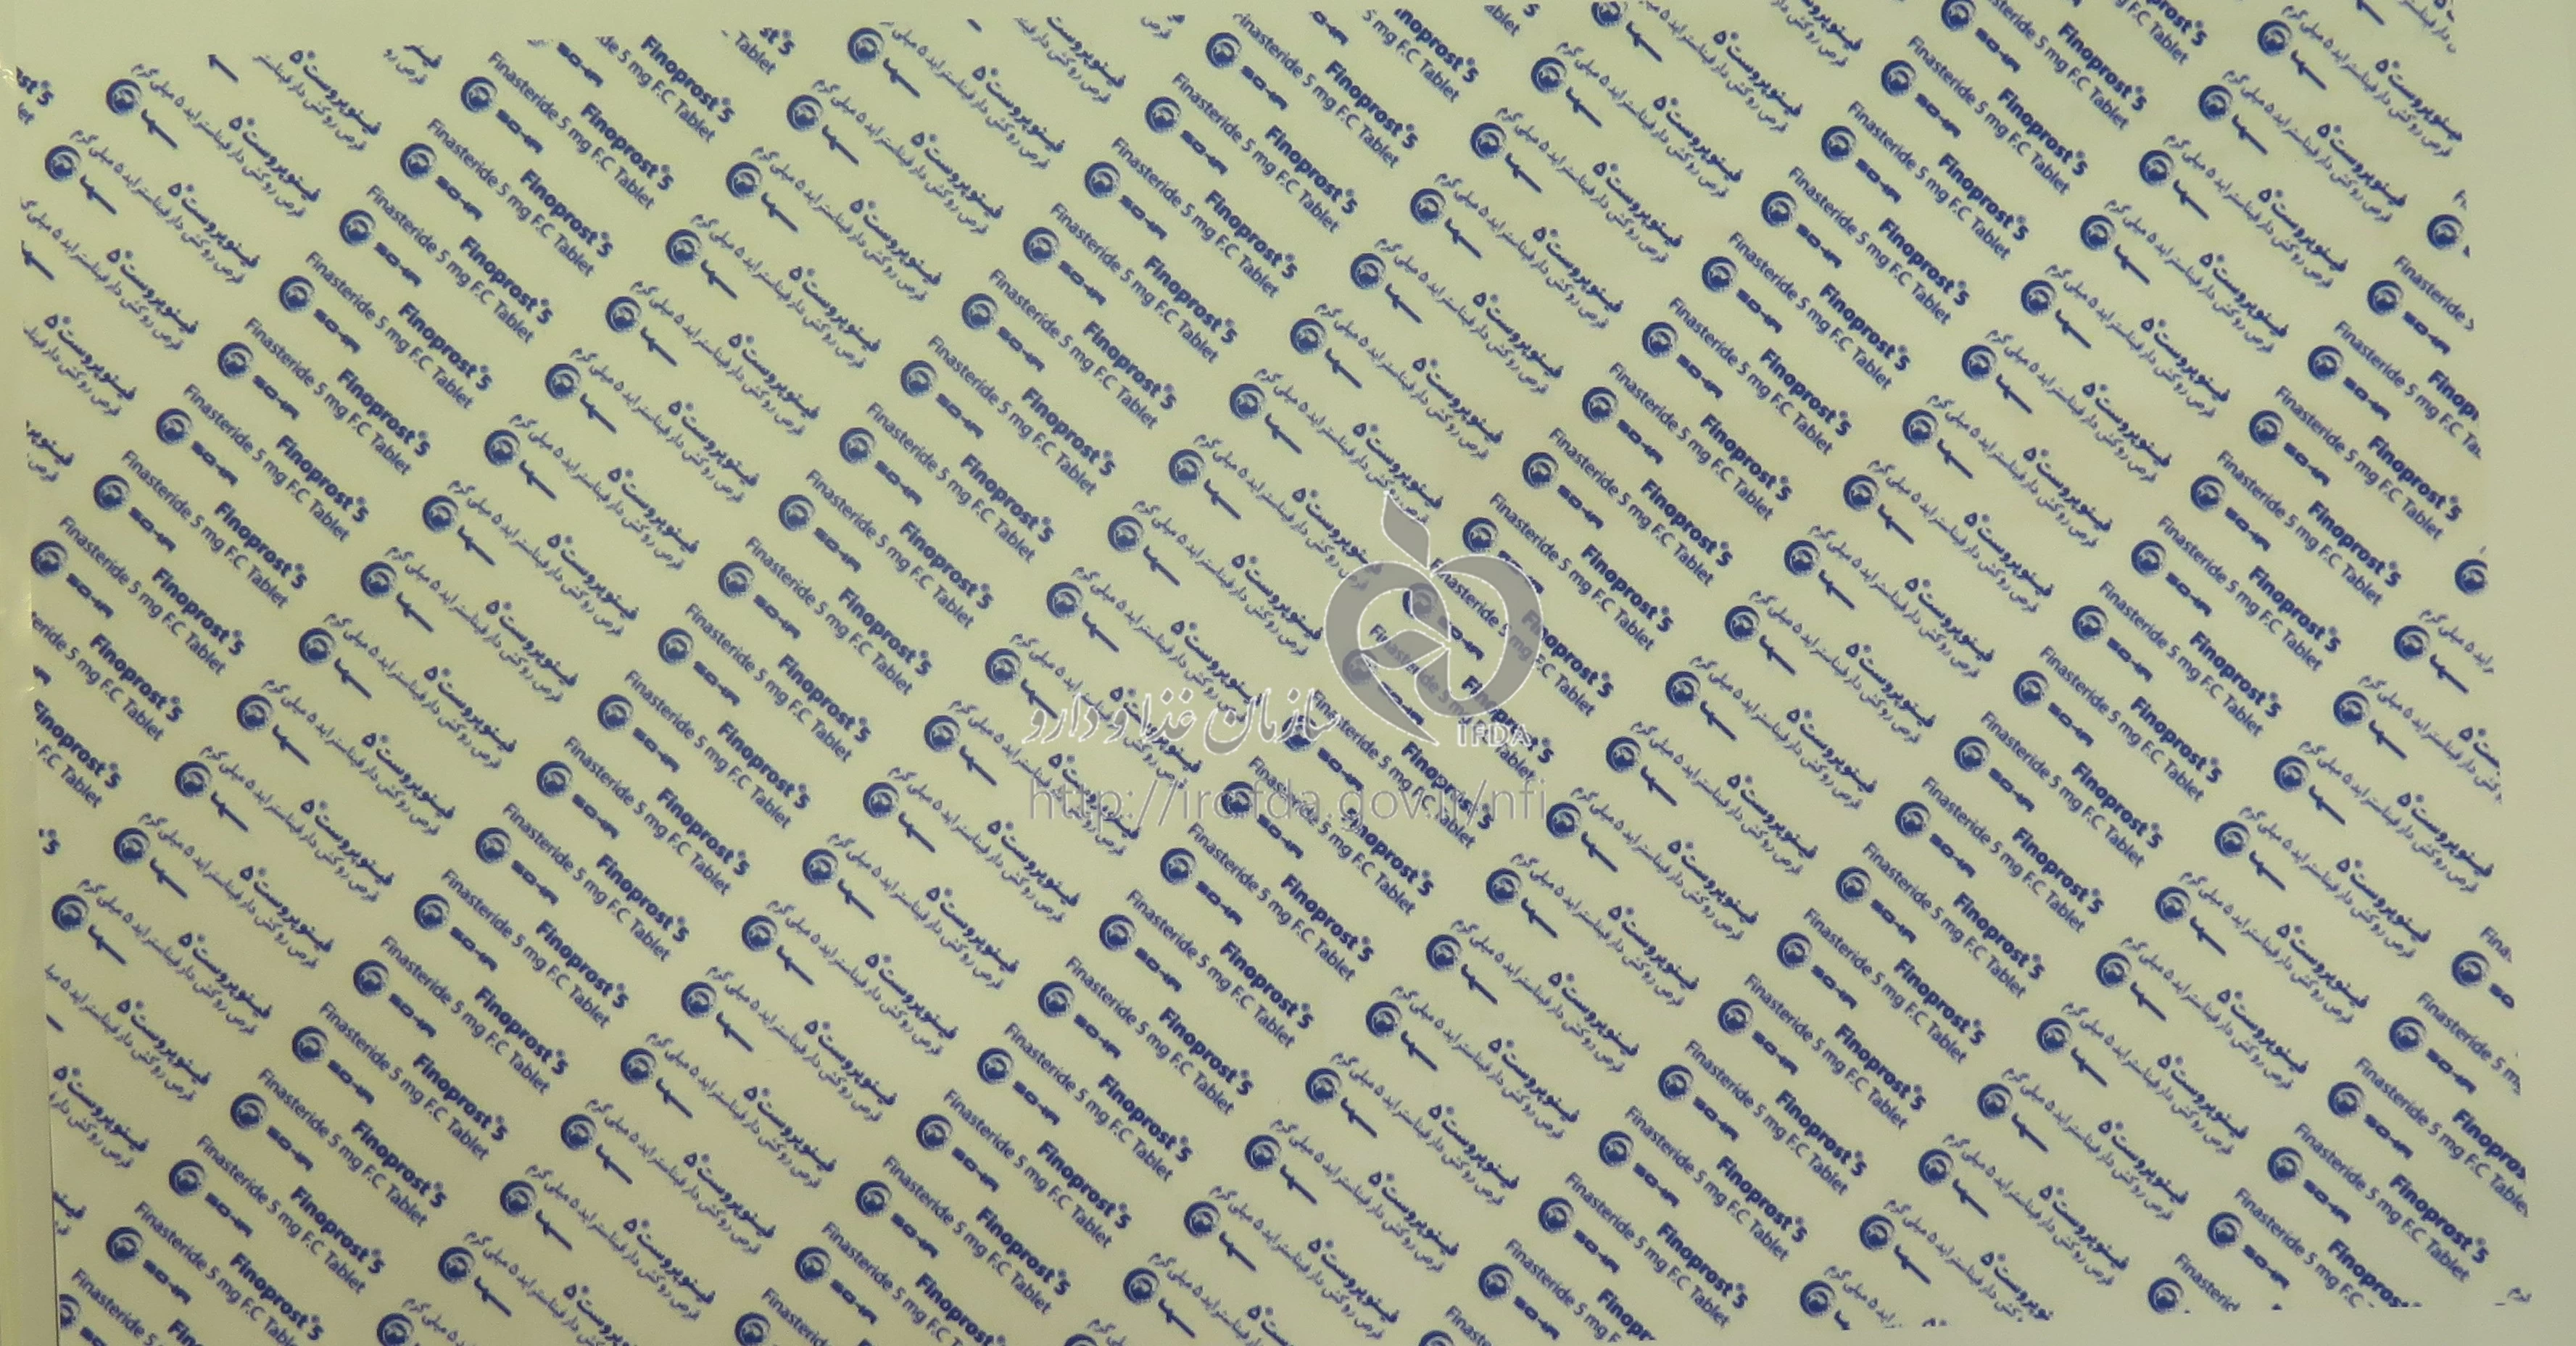 Finoprost®5
Finasteride 5 mg F.C Tablet
فینوپروست®۵
قرص روکش دار فیناستراید ۵ میلی گرم
سها
سازمان غذا و دارو
IRDA
http://irc.fda.gov.ir/nfi